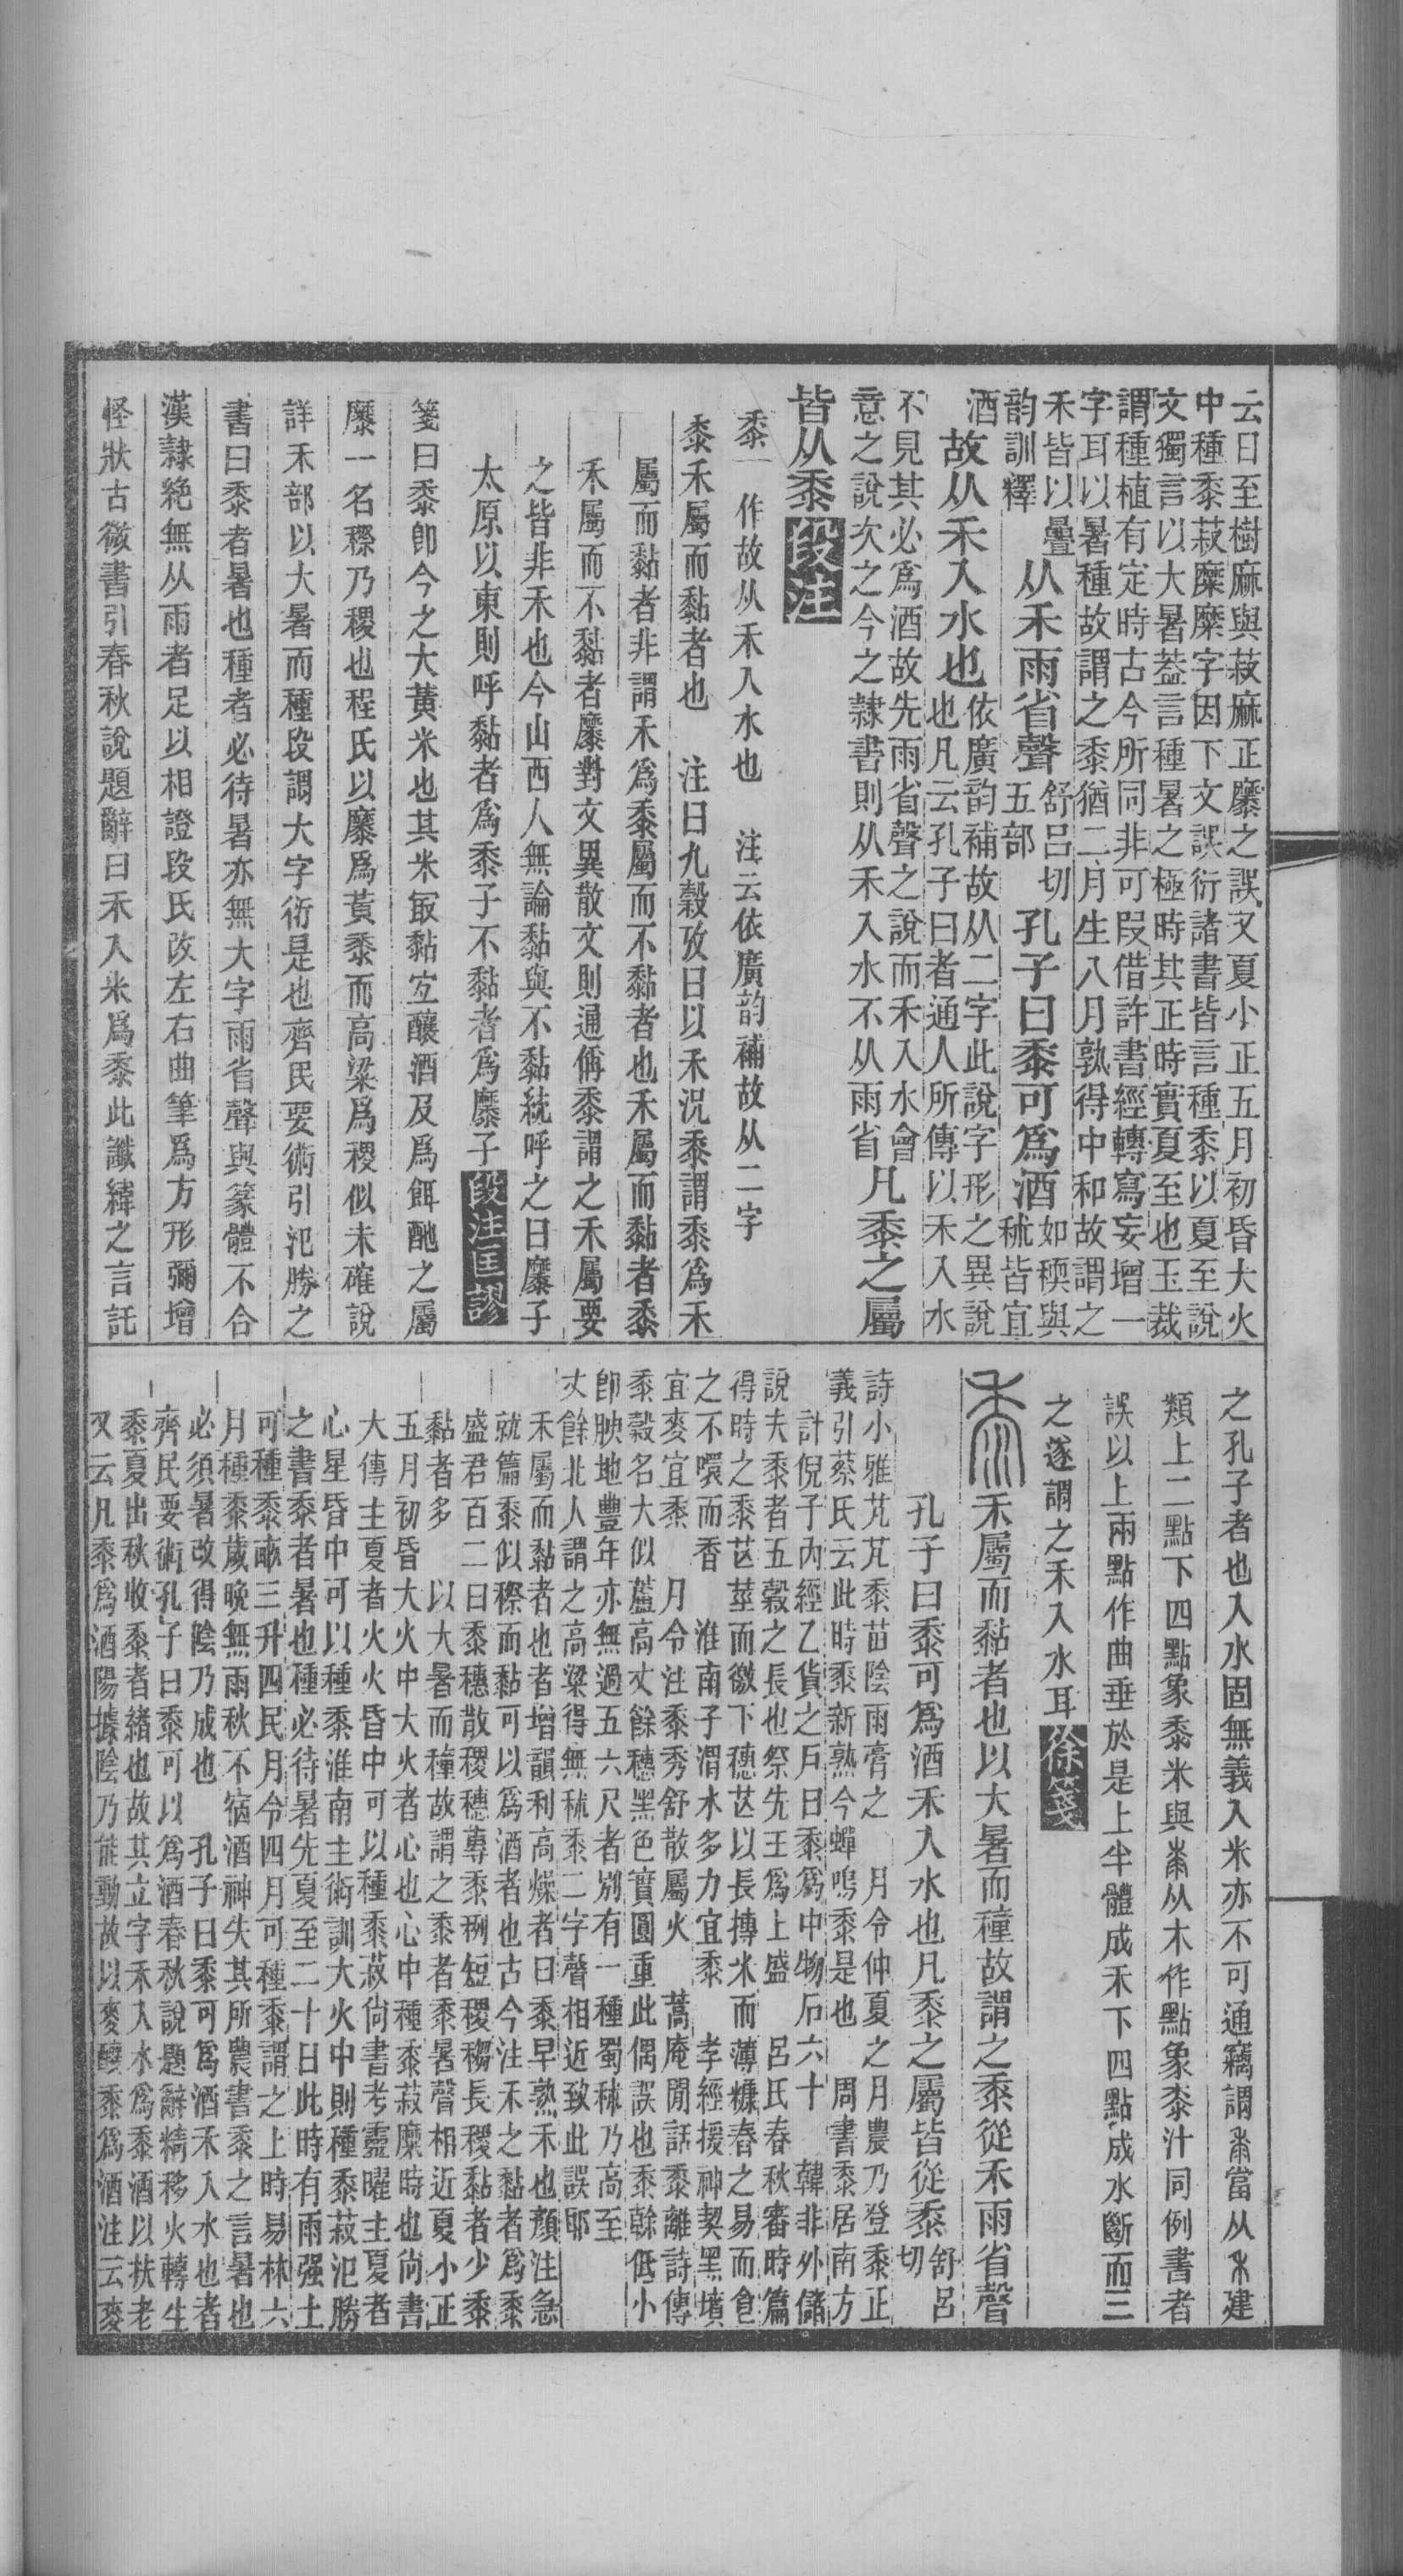 云日至樹麻與菽麻正麋之誤又夏小正五月初昏大火
中種黍菽糜糜字因下文誤衍諸書皆言種黍以夏至說
文獨言以大暑葢言種暑之極時其正時實夏至也玉裁
謂種植有定時古今所同非可叚借許書經轉寫妄增一
字耳以暑種故謂之黍猶二月生八月孰得中和故謂之
禾皆以疊
韵訓釋
从禾雨省聲
舒呂切
五部
孔子曰黍可爲酒
如稬與
秫皆宜
酒
故从禾入水也
依廣韵補故从二字此說字形之異說
也凡云孔子曰者通人所傳以禾入水
不見其必爲酒故先雨省聲之說而禾入水會
意之說次之今之隷書則从禾入水不从雨省
凡黍之屬
皆从黍段注
黍一作故从禾入水也 注云依廣韵補故从二字
黍禾屬而黏者也 注曰九穀攷曰以禾況黍謂黍爲禾
屬而黏者非謂禾爲黍屬而不黏者也禾屬而黏者黍
禾屬而不黏者穈對文異散文則通偁黍謂之禾屬要
之皆非禾也今山西人無論黏與不黏統呼之曰穈子
太原以東則呼黏者爲黍子不黏者爲穈子段注匡謬
箋曰黍卽今之大黃米也其米㝡黏宐釀酒及爲餌酏之屬
穈一名穄乃稷也程氏以穈爲黃黍而高粱爲稷似未確說
詳禾部以大暑而種段謂大字衍是也齊民要術引氾勝之
書曰黍者暑也種者必待暑亦無大字雨省聲與篆體不合
漢隷絶無从雨者足以相證段氏改左右曲筆爲方形彌增
怪狀古微書引春秋說題辭曰禾入米爲黍此讖緯之言託
之孔子者也入水固無義入米亦不可通竊謂當从建
類上二點下四點象黍米與桼从木作點象桼汁同例書者
誤以上兩點作曲垂於是上半體成禾下四點成水斷而三
之遂謂之禾入水耳徐箋
禾屬而黏者也以大暑而種故謂之黍從禾雨省聲
孔子曰黍可爲酒禾入水也凡黍之屬皆從黍
舒呂
切
詩小雅芃芃黍苗陰雨膏之 月令仲夏之月農乃登黍正
義引蔡氏云此時黍新熟今蟬鳴黍是也 周書黍居南方
計倪子內經乙貨之戶曰黍爲中物石六十 韓非外儲
說夫黍者五穀之長也祭先王爲上盛 呂氏春秋審時篇
得時之黍芑莖而徼下穗芑以長摶米而薄糠舂之易而食
之不噮而香 淮南子渭水多力宜黍 孝經援神契黑墳
宜麥宜黍 月令注黍秀舒散屬火 蒿庵閒話黍離詩傳
黍穀名大似蘆高丈餘穗黑色實圓重此偶誤也黍榦低小
卽腴地豐年亦無過五六尺者別有一種蜀秫乃高至
丈餘北人謂之高粱得無秫黍二字聲相近致此誤耶
禾屬而黏者也者增韻利高燥者曰黍早熟禾也顏注急
就篇黍似穄而黏可以爲酒者也古今注禾之黏者爲黍
盛君百二曰黍穗散稷穗專黍栵短稷稠長稷黏者少黍
黏者多 以大暑而種故謂之黍者黍暑聲相近夏小正
五月初昏大火中大火者心也心中種黍菽糜時也尙書
大傳主夏者火火昏中可以種黍菽尙書考靈曜主夏者
心星昏中可以種黍淮南主術訓大火中則種黍菽氾勝
之書黍者暑也種必待暑先夏至二十日此時有雨强土
可種黍畝三升四民月令四月可種黍謂之上時易林六
月種黍歲晚無雨秋不宿酒神失其所農書黍之言暑也
必須暑改得陰乃成也 孔子曰黍可爲酒禾入水也者
齊民要術孔子曰黍可以爲酒春秋說題辭精移火轉生
黍夏出秋收黍者緒也故其立字禾入水爲黍酒以扶老
又云凡黍爲酒陽據陰乃能動故以麥釀黍爲酒注云麥